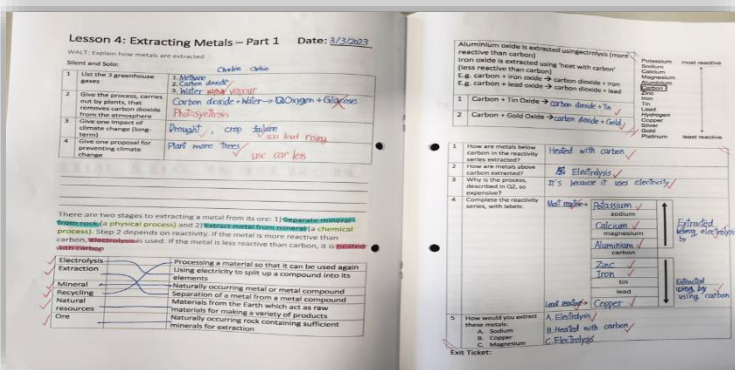 Lesson 4: Extracting Metals – Part 1 Date: 3/3/2023
WALT: Explain how metals are extracted
Silent and Solo:
1 List the 3 greenhouse gases
1. Methane
2. Carbon dioxide
3. Water vapour
2 Give the process, carries out by plants, that removes carbon dioxide from the atmosphere
Carbon dioxide + Water → Oxygen + Glucose
Photosynthesis
3 Give one impact of climate change (long-term)
Drought, crop failure
sea level rising
4 Give one proposal for preventing climate change
Plant more trees
use car less
There are two stages to extracting a metal from its ore: 1) Separate mineral
from rock (a physical process) and 2) Extract metal from mineral (a chemical
process). Step 2 depends on reactivity. If the metal is more reactive than
carbon, electrolysis is used. If the metal is less reactive than carbon, it is heated
with carbon
Electrolysis
Extraction
Mineral
Recycling
Natural
resources
Ore
Processing a material so that it can be used again
Using electricity to split up a compound into its
elements
Naturally occurring metal or metal compound
Separation of a metal from a metal compound
Materials from the Earth which act as raw
materials for making a variety of products
Naturally occurring rock containing sufficient
minerals for extraction
Aluminium oxide is extracted using (more
reactive than carbon)
Iron oxide is extracted using 'heat with carbon'
(less reactive than carbon)
E.g. carbon + iron oxide → carbon dioxide + iron
E.g. carbon + lead oxide → carbon dioxide + lead
1 Carbon + Tin Oxide → carbon dioxide + Tin
2 Carbon + Gold Oxide → carbon dioxide + Gold
Potassium most reactive
Sodium
Calcium
Magnesium
Aluminium
Carbon
Zinc
Iron
Tin
Lead
Hydrogen
Copper
Silver
Gold
Platinum least reactive
1 How are metals below carbon in the reactivity series extracted?
Heated with carbon
2 How are metals above carbon extracted?
Electrolysis
3 Why is the process, described in Q2, so expensive?
It's because it uses electricity
4 Complete the reactivity series, with labels:
Most reactive → Potassium
sodium
Calcium
magnesium
Aluminium
carbon
Zinc
Iron
tin
lead
Least reactive → Copper
Extracted
using electrolysis
by
Extracted
using by
using carbon
5 How would you extract these metals:
A. Sodium
B. Copper
C. Magnesium
A. Electrolysis
B. Heated with carbon
C. Electrolysis
Exit Ticket: